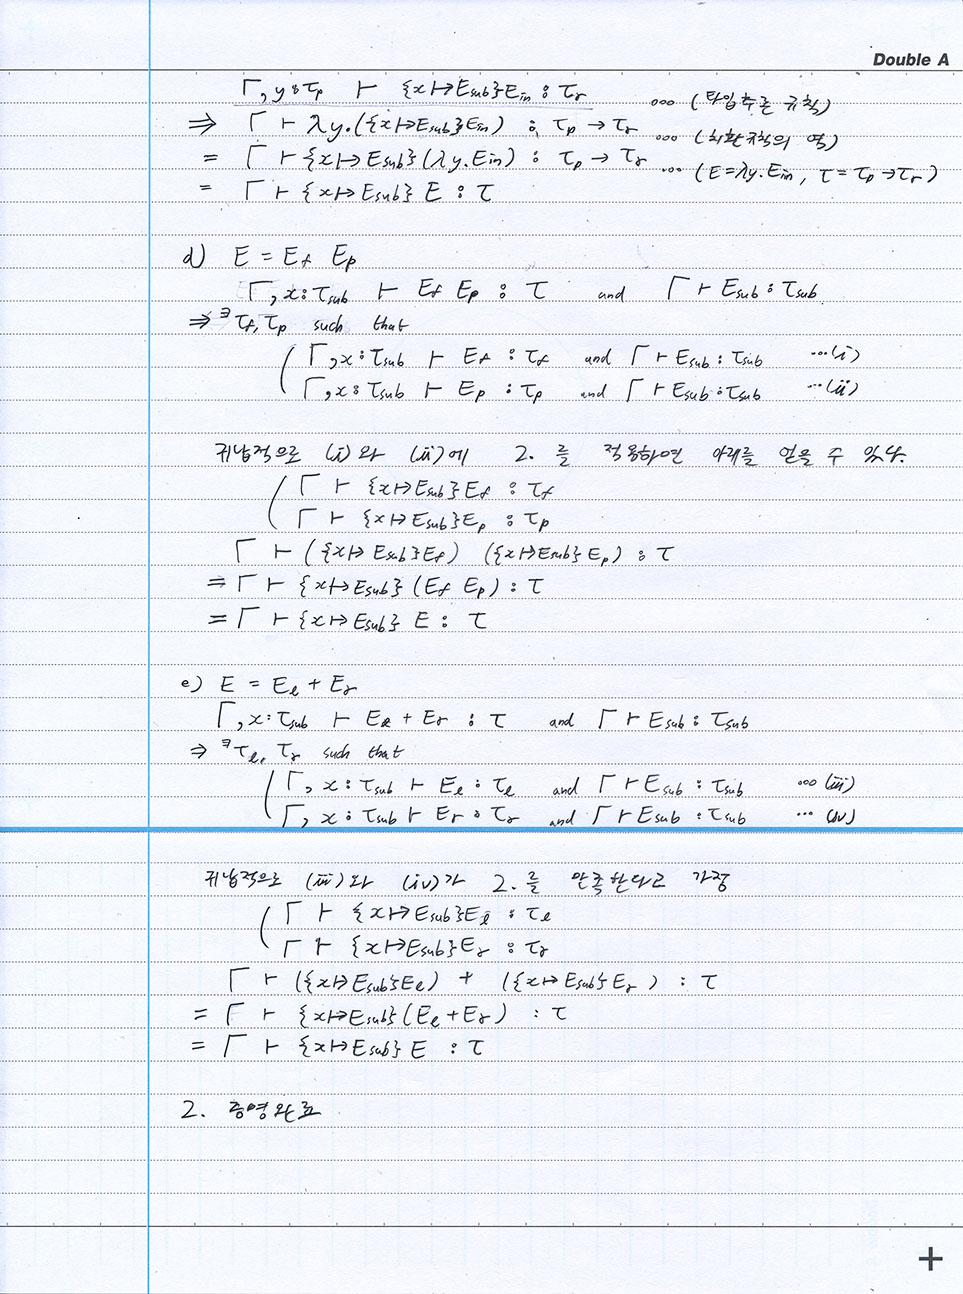 Double A
Γ, y:τp ⊢ {x↦Esub}Ein : τr ... (타입추론 규칙)
⇒ Γ ⊢ λy.({x↦Esub}Ein) : τp → τr ... (치환규칙의 역)
= Γ ⊢ {x↦Esub}(λy.Ein) : τp → τr ... (E=λy.Ein, τ=τp→τr)
= Γ ⊢ {x↦Esub} E : τ
d) E = Ef Ep
Γ, x:τsub ⊢ Ef Ep : τ and Γ ⊢ Esub : τsub
⇒ ∃τf, τp such that
( Γ, x:τsub ⊢ Ef : τf and Γ ⊢ Esub : τsub ...(i)
Γ, x:τsub ⊢ Ep : τp and Γ ⊢ Esub : τsub ...(ii)
귀납적으로 (i)와 (ii)에 2. 를 적용하면 아래를 얻을 수 있다.
( Γ ⊢ {x↦Esub}Ef : τf
Γ ⊢ {x↦Esub}Ep : τp
Γ ⊢ ({x↦Esub}Ef) ({x↦Esub}Ep) : τ
= Γ ⊢ {x↦Esub}(Ef Ep) : τ
= Γ ⊢ {x↦Esub} E : τ
e) E = Eℓ + Er
Γ, x:τsub ⊢ Eℓ + Er : τ and Γ ⊢ Esub : τsub
⇒ ∃τℓ, τr such that
( Γ, x:τsub ⊢ Eℓ : τℓ and Γ ⊢ Esub : τsub ...(iii)
Γ, x:τsub ⊢ Er : τr and Γ ⊢ Esub : τsub ...(iv)
귀납적으로 (iii)와 (iv)가 2.를 만족한다고 가정
( Γ ⊢ {x↦Esub}Eℓ : τℓ
Γ ⊢ {x↦Esub}Er : τr
Γ ⊢ ({x↦Esub}Eℓ) + ({x↦Esub}Er) : τ
= Γ ⊢ {x↦Esub}(Eℓ+Er) : τ
= Γ ⊢ {x↦Esub} E : τ
2. 증명완료